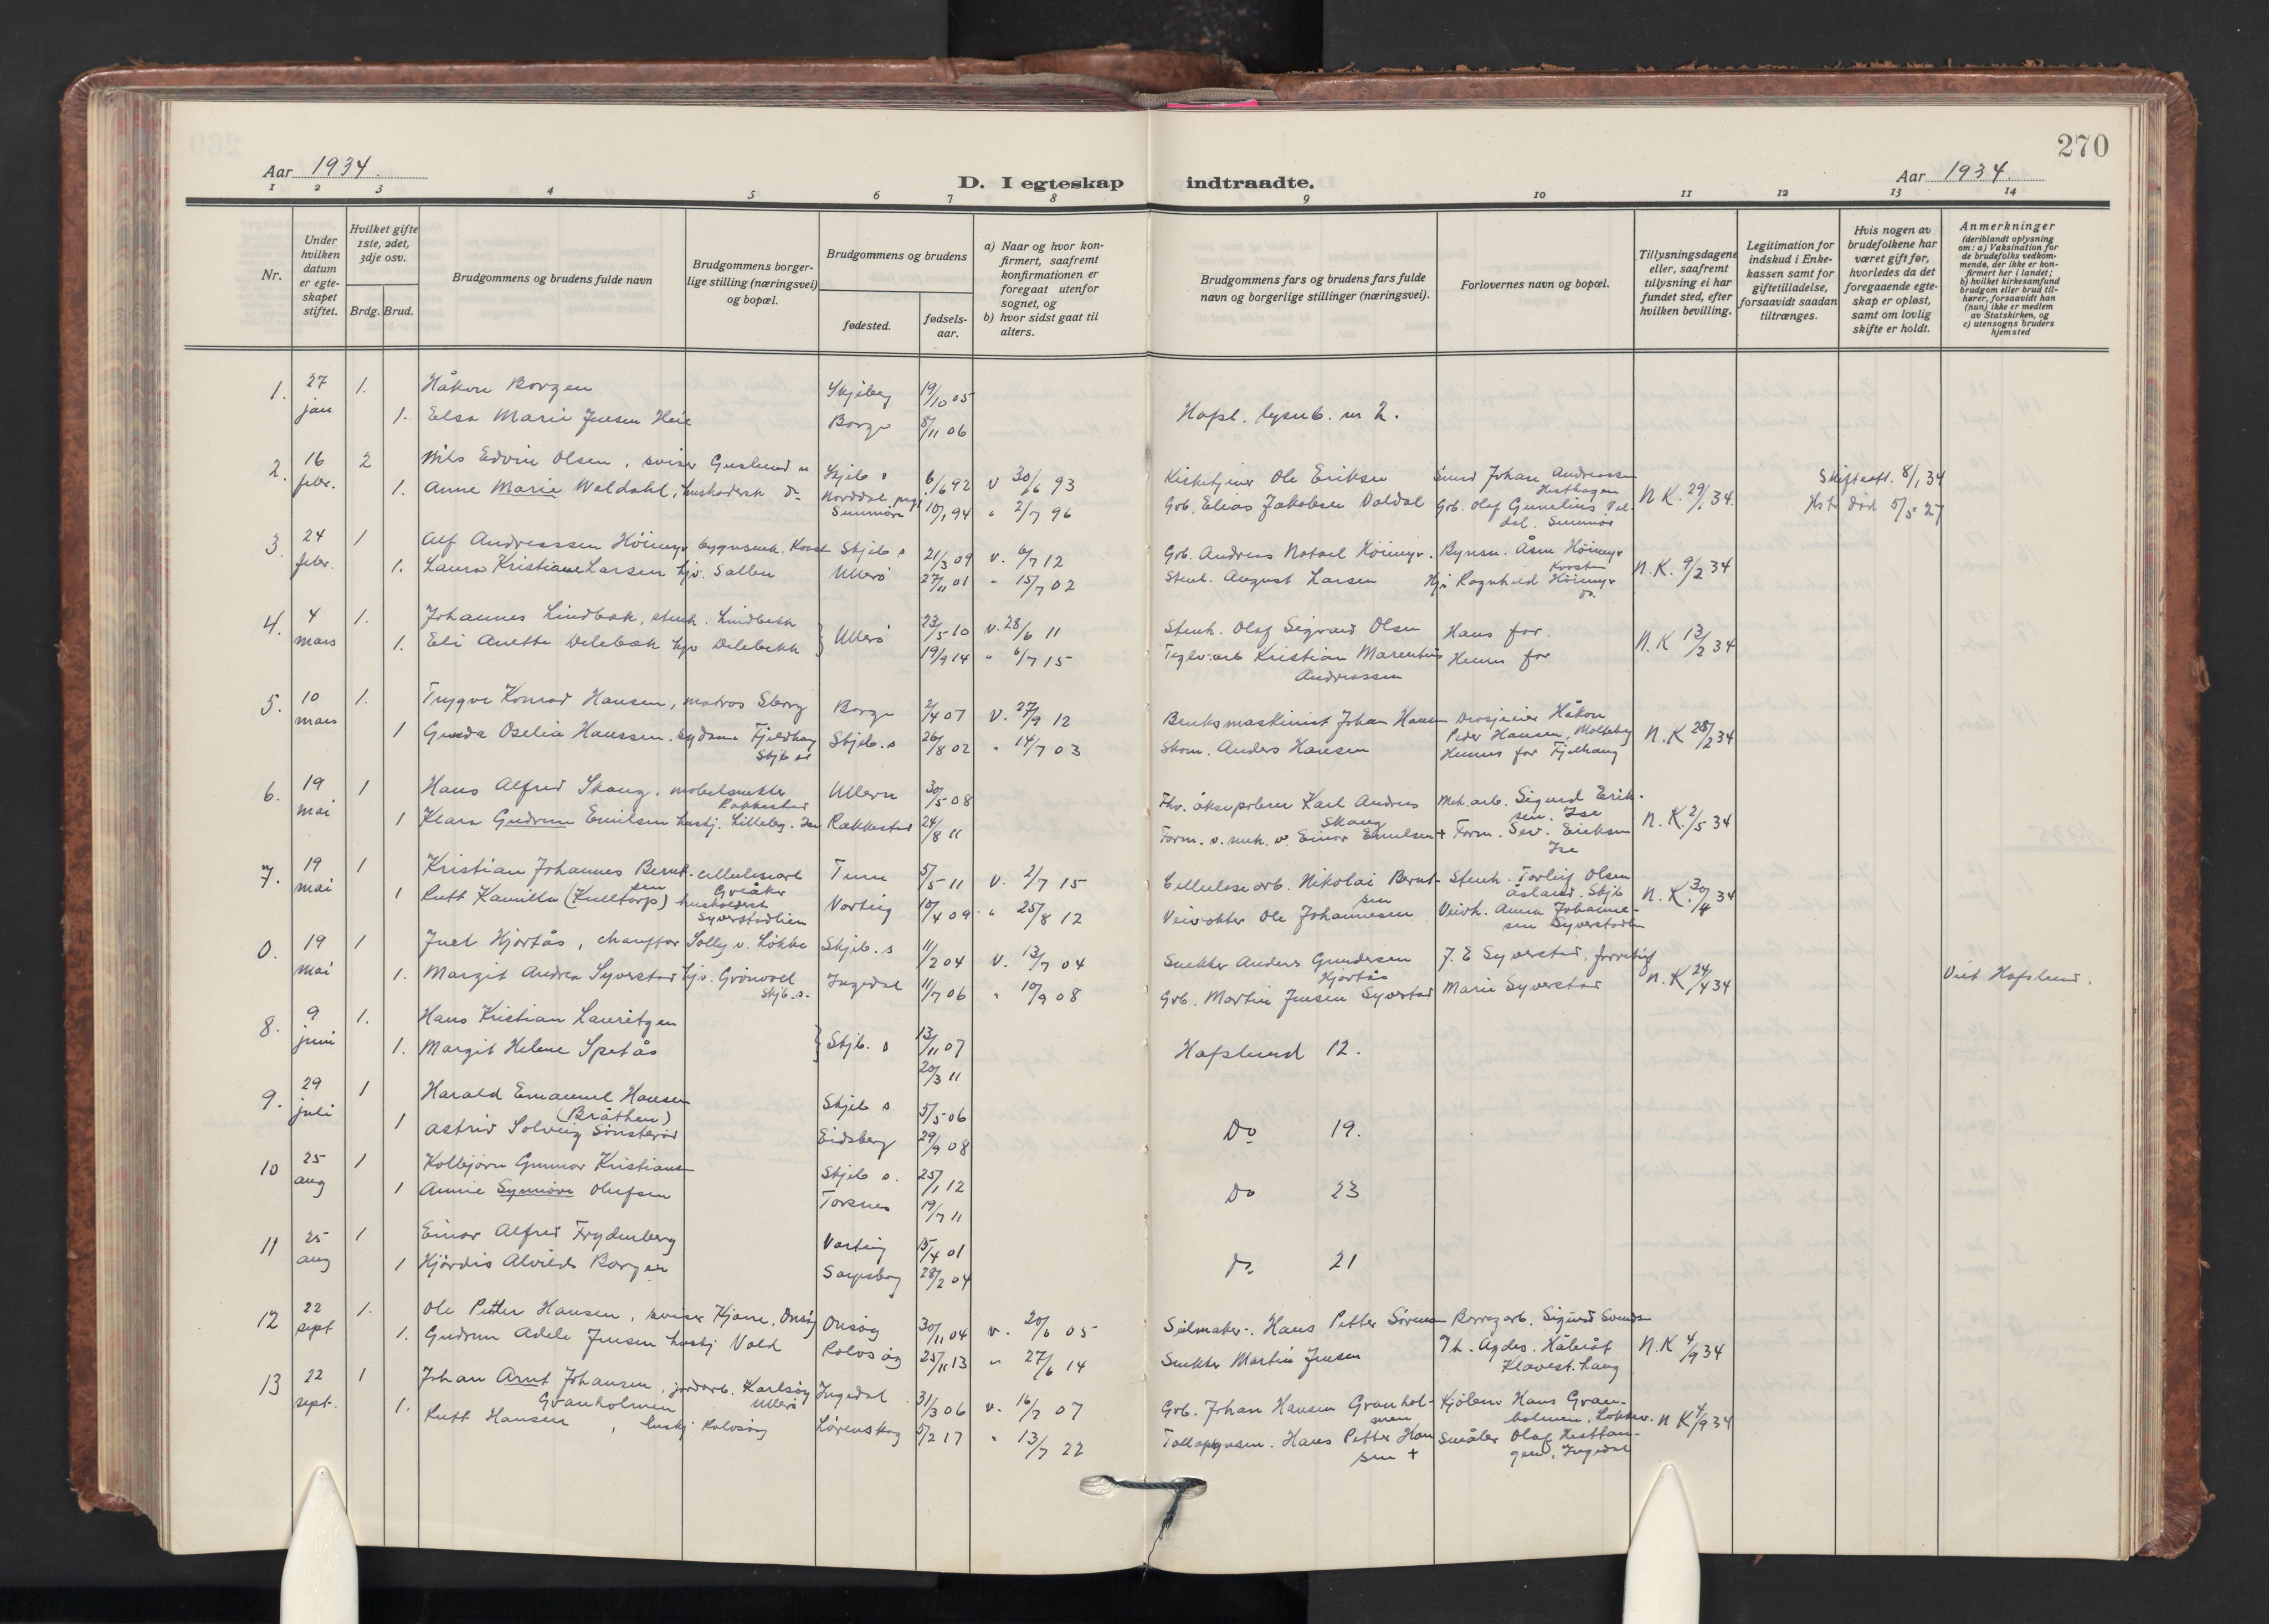 269
270
Aar 1934.
D. I egteskap indtraadte.
Aar 1934.
1 2 3 4 5 6 7 8 9 10 11 12 13 14
Nr.
Under hvilken datum er egteskapet stiftet.
Hvilket gifte 1ste, 2det, 3dje osv.
Brdg. Brud.
Brudgommens og brudens fulde navn
Brudgommens borgerlige stilling (næringsvei) og bopæl.
Brudgommens og brudens
fødested.
fødselsaar.
a) Naar og hvor konfirmert, saafremt konfirmationen er foregaat utenfor sognet, og
b) hvor sidst gaat til alters.
Brudgommens fars og brudens fars fulde navn og borgerlige stillinger (næringsvei).
Forlovernes navn og bopæl.
Tillysningsdagene eller, saafremt tillysning ei har fundet sted, efter hvilken bevilling.
Legitimation for indskud i Enkekassen samt for giftetilladelse, forsaavidt saadan tiltrænges.
Hvis nogen av brudefolkene har været gift før, hvorledes da det foregaaende egteskap er opløst, samt om lovlig skifte er holdt.
Anmerkninger
(deriblandt oplysning om: a) Vaksination for de brudefolks vedkommende, der ikke er konfirmert her i landet;
b) hvilket kirkesamfund brudgom eller brud tilhører, forsaavidt han (hun) ikke er medlem av Statskirken, og
c) utensogns bruders hjemsted
1. 27 jan 1. Håkon Borgen Skjeberg 19/10 05
1. Elsa Marie Jensen Heie Borge 8/11 06 Hafsl. lysnb. nr 2.
2. 16 febr. 2 Nils Edvin Olsen, sviser Guslund Skjeb s 6/6 92 v 30/6 93 Kirketjener Ole Eriksen Johan Andreassen Hesthagen N.K. 29/1 34. Skifteatt. 8/1 34
1. Anne Marie Valdahl, husholdersk do Norddal Sunmøre 10/1 94 " 2/7 96 Grb. Elias Jakobsen Valdal Grb. Olaf Gunelius Valdal. Sunmør død 5/5 27
3. 24 febr. 1 Alf Andreassen Høimyr Skjeb s 21/3 09 v. 6/7 12 Grb. Andreas Høimyr. Åsm Høimyr N.K. 9/2 34
1. Laura Kristiane Larsen hjv. Ullerø 27/11 01 " 15/7 02 Stenh. August Larsen Hj. Ragnhild Høimyr do.
4. 4 mars 1. Johannes Lindbæk, stenh. Lindbekk Ullerø 23/5 10 v. 28/6 11 Stenh. Olaf Sigvard Olsen Hans far. N.K 13/2 34
1. Eli Anette Delebæk hjv Delebekk 19/9 14 " 6/7 15 Teglv.arb Kristian Marentius Andreassen Hennes far
5. 10 mars 1. Trygve Konrad Hansen, matros Borge 2/4 07 v. 27/9 12 Bruksmaskinist Johan Hansen Drosjeeier Håkon Peder Hansen, N.K 28/2 34
1 Gunda Oselia Hanssen. Fjeldhaug Skjb s Skjeb. s 26/8 02 " 14/7 03 Skom. Anders Hansen Hennes far Fjelhaug
6. 19 mai 1 Hans Alfred Skaug. møbelsnekker Rakkestad Ullern 30/5 08 Karl Andreas Skaug Mek. arb. Sigurd Eriksen. Ise N.K. 2/5 34
1 Klara Gudrun Emilsen husbj. Lilleby. Ise Rakkestad 24/8 11 Form. v. mek. v. Einar Emilsen + Form. Sev. Eriksen Ise
7. 19 mai 1 Kristian Johannes Berntsen cellulosearb Greåker Tune 5/5 11 v. 2/7 15 Cellulosearb. Nikolai Berntsen Stenh. Torleif Olsen Åsland. Skjb N.K. 30/4 34
1 Rutt Kamilla husholdersk Syverstadlien Varteig 10/4 09 " 25/8 12 Veivokter Ole Johannesen Veivh. Anna Johannesen Syverstadlien
0. 19 mai 1 Juel Hjortås, chauffør Solly v. Løkke Skjeb. s 11/2 04 v. 13/7 04 Snekker Anders Gundersen Hjortås J. E Syverstad, N.K 24/4 34
1. Margit Andrea Syverstad hjv. Grönvold Skjb. s. Ingedal 11/7 06 " 10/9 08 Grb. Martin Jensen Syverstad Marie Syverstad Viet Hafslund.
8. 9 juni 1. Hans Kristian Lauritzen Skjb. s 13/11 07
1. Margit Helene Spetås 20/3 11 Hafslund 12.
9. 29 juli 1 Harald Emanuel Hansen (Bråthen) Skjeb s 5/5 06
1 Astrid Solveig Sönsterød Eidsberg 29/9 08 Do 19.
10 25 aug 1 Kolbjørn Gunnar Kristiansen Skjeb s. 25/1 12
1 Annie Synnöve Olufsen Torsnes 19/7 11 Do 23
11 25 aug 1 Einar Alfred Frydenberg Varteig 15/4 01
1 Hjördis Alvilde Borgen Sarpsborg 28/2 04 Do 21
12 22 sept 1. Ole Petter Hansen, sviser Kjøne, Onsøy Onsøy 30/11 04 v. 20/6 05 Seilmaker. Hans Petter Sørensen Borregarb. Sigurd N.K 4/9 34
1. Gudrun Adele Jensen husbj Vold Rolvsøy 25/11 13 " 27/6 14 Snekker Martin Jensen
13 22 sept. 1 Johan Arnt Johansen Granholmen, jordarb. Karlsøy Ullerø Ingedal 31/3 06 v. 16/7 07 Grb. Johan Hansen Granholmen Hans Granholmen. N K 4/9 34
1. Rutt Hansen, husbj Rolvsøy Lørenskog 5/2 17 " 13/7 22 Hans Petter Hansen + Småbr Olaf Hesttangen, Ingedal